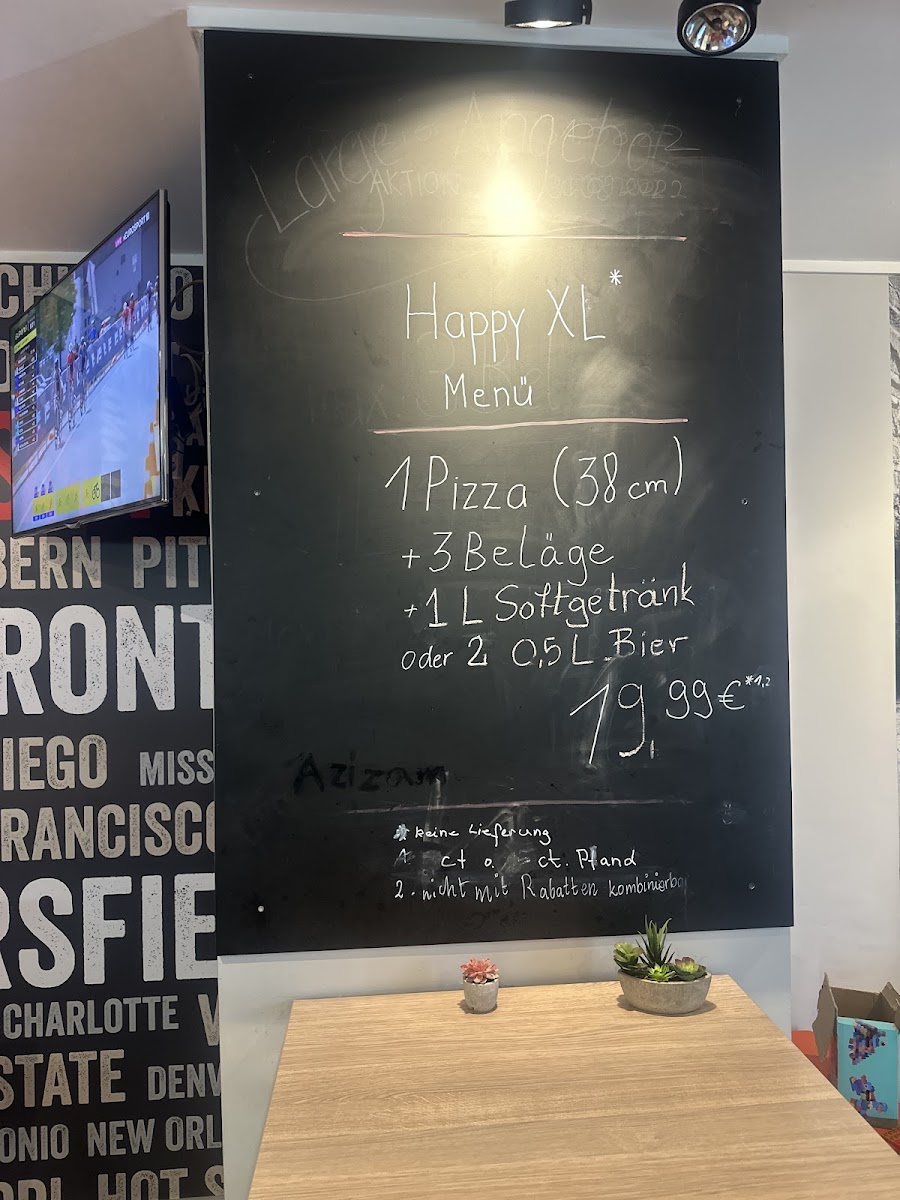 Large - Angebot
AKTION
Happy XL*
Menü
1 Pizza (38 cm)
+ 3 Beläge
+ 1 L Softgetränk
oder 2 0,5 L Bier
19,99 €*1,2
Azizam
* keine Lieferung
1. ct o. ct. Pfand
2. nicht mit Rabatten kombinierba
BERN PIT
RONT
IEGO MISS
RANCISCO
RSFIE
CHARLOTTE
STATE DENV
ONIO NEW ORL
HOT S